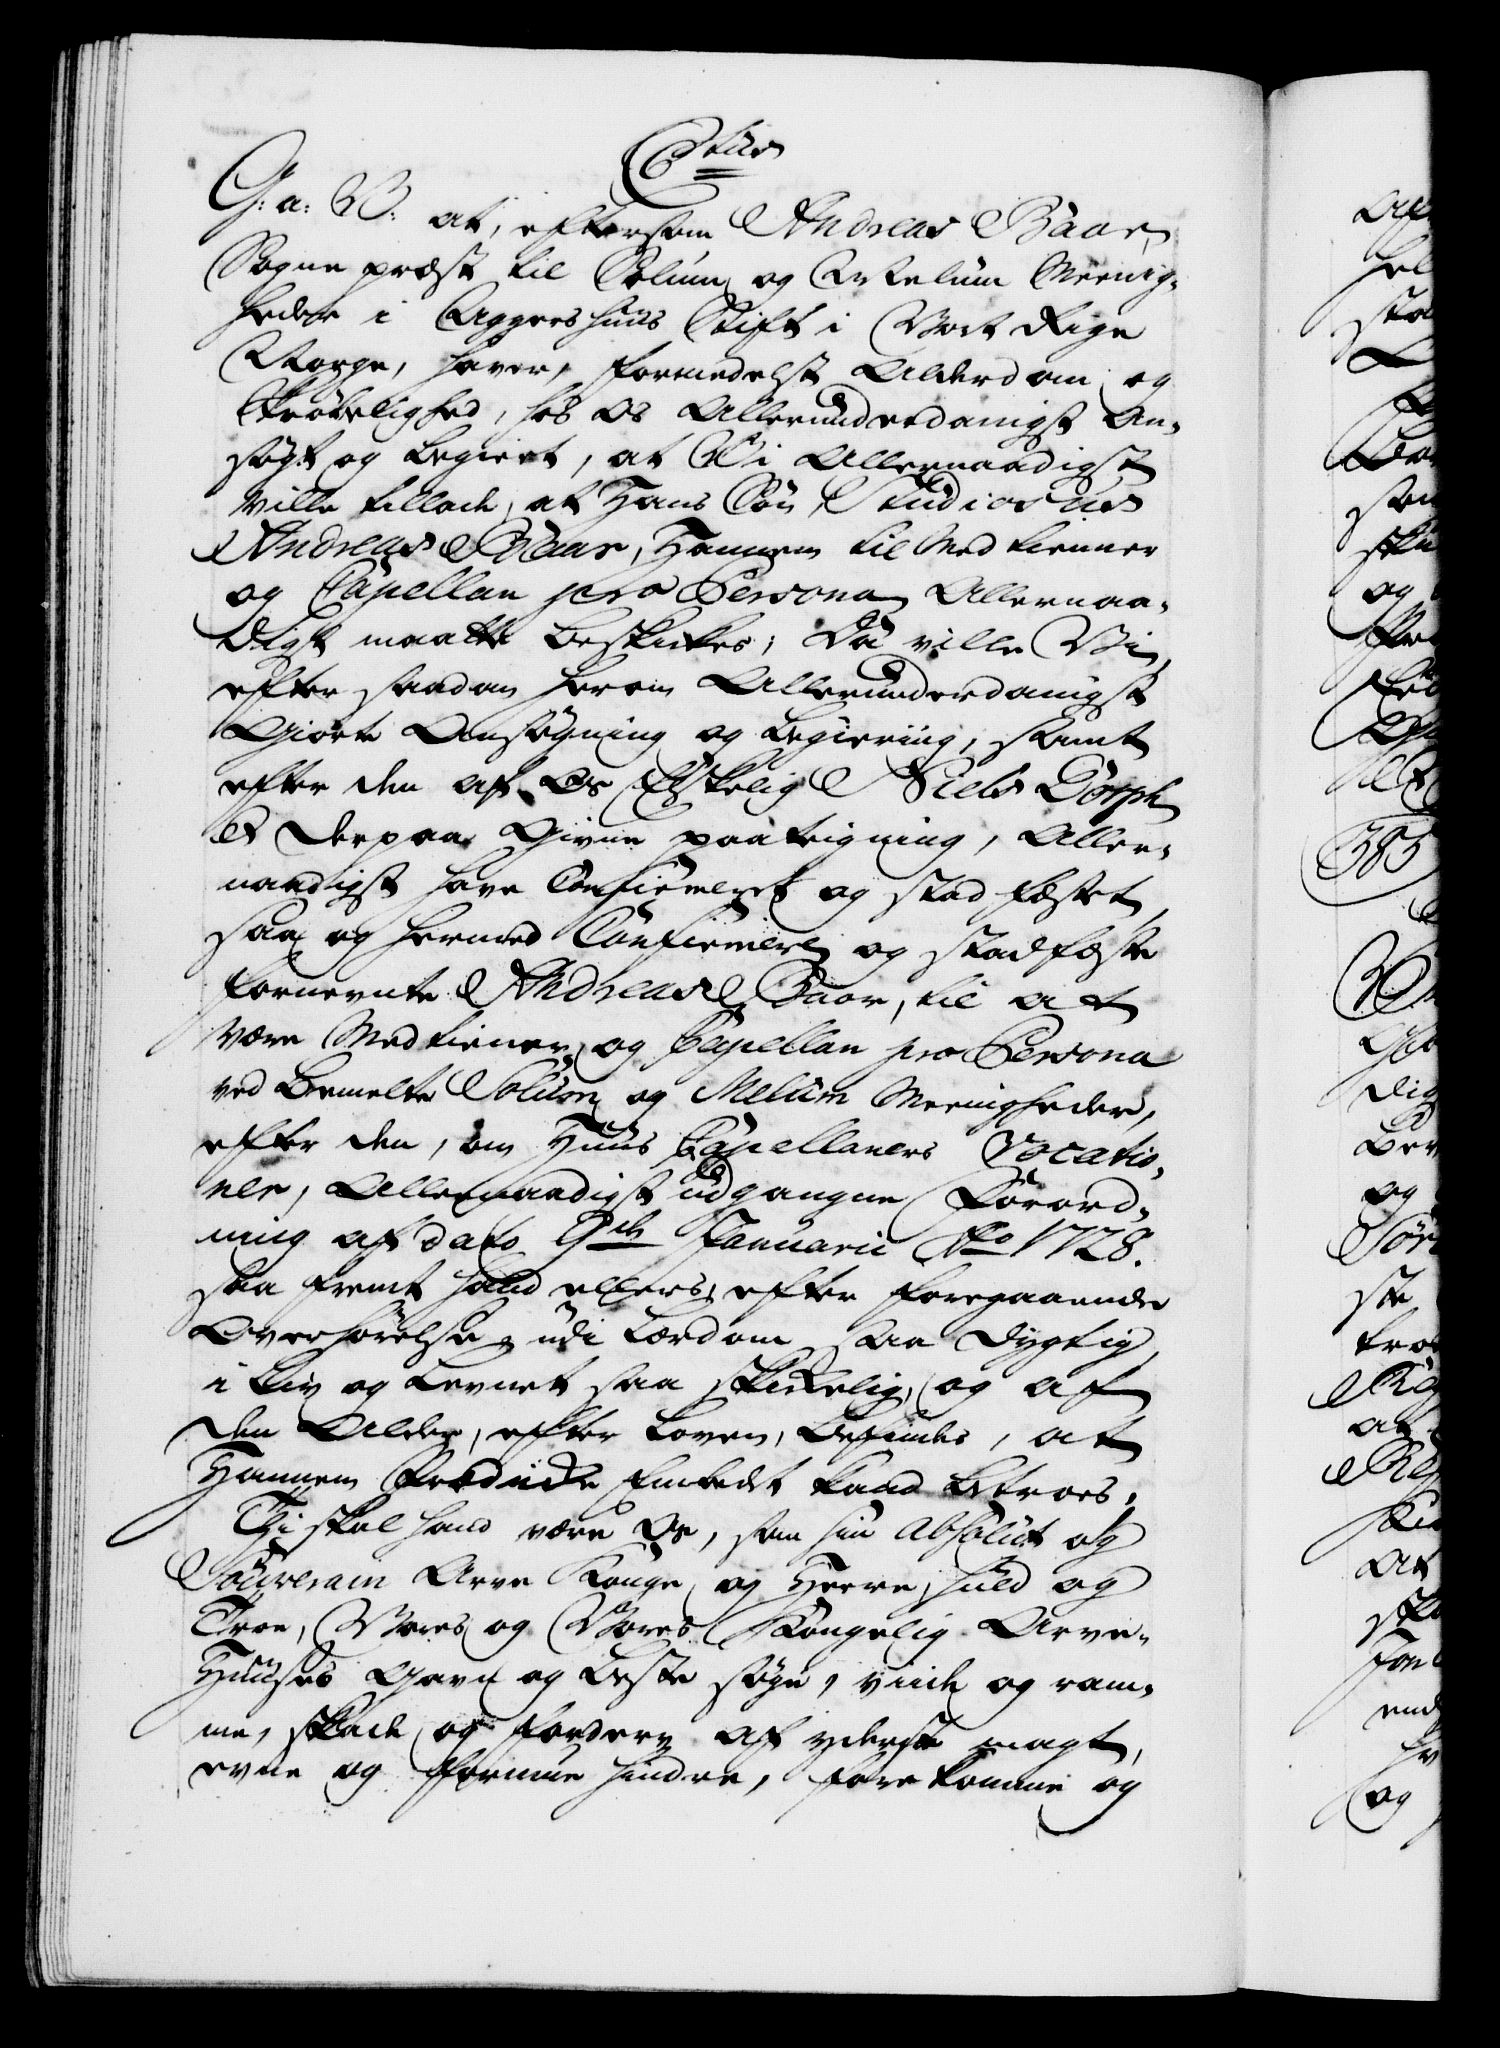 C6tus
G: a: V: at, eftersom Andreas Baar,
Sogne præst til Solum og Melum Meenig-
heder i Aggershuus Stift i Vort Rige
Norge, haver, formedelst Alderdom og
Skrøbelighed, hos os Allerunderdanigst an-
søgt og begiert, at Vi Allernaadigst
ville tillade, at Hans Søn, Studiosus
Andreas Baar, Hannem til Medtienner
og Capellan pro Persona Allernaa-
digst maatte beskikkes; Da ville Vi,
efter saadan herom Allerunderdanigst
Giorte Ansøgning og begiering, samt
efter den af Os Elskelig Niels Dorph
derpaa Givne paateigning, Aller-
naadigst have Confirmeret og stadfæstet,
saa og hermed Confirmere og stadfæste
fornevnte Andreas Baar, til at
være Medtiener og Capellan pro Persona
ved bemelte Solum og Melum Meenigheder,
efter den, om Huus Capellaners Vocatio-
ner, Allernaadigst udgangne Forord-
ning af dato 9de Januarii Ao 1728.
saa fremt hand ellers, efter foregaaende
Overhørelse, udi Lærdom saa dygtig,
i Liv og Levnet saa skikkelig, og af
den Alder, efter Loven, befindes, at
Hannem Prædicke Embedet kand betroes;
Thi skal hand være Os, som sin Absolut og
Souverain Arve Konge og Herre, huld og
Troe, Vores og Vores Kongelig Arve-
Huuses Gavn og beste søge, viide og ram-
me, skade og forderv af yderste magt,
evne og formue hindre, forekomme og
385